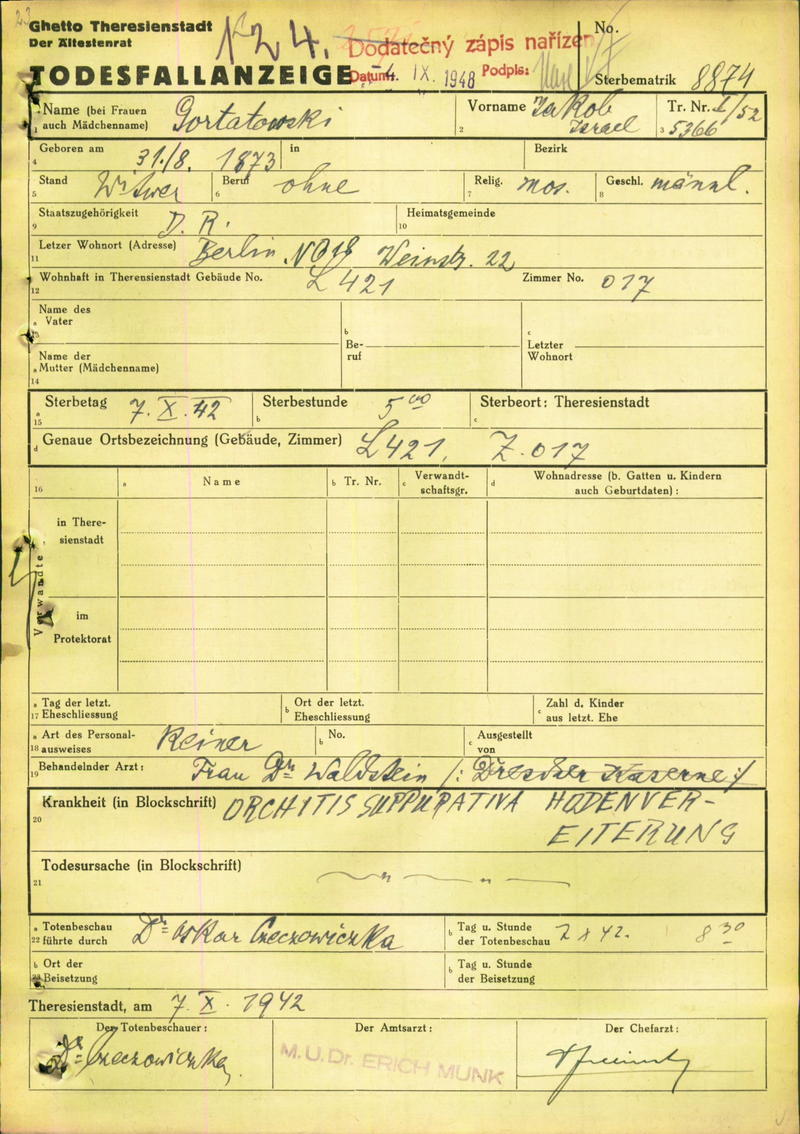 Ghetto Theresienstadt
Der Ältestenrat
N24.
Dodatečný zápis nařízen
Datum: -4. IX. 1948 Podpis:
No.
TODESFALLANZEIGE
Sterbematrik 8874
Name (bei Frauen auch Mädchenname) Gortatowski
1
Vorname Jakob Israel
2
Tr. Nr. I/52
3 5366
Geboren am 31./8. 1873 in
4
Bezirk
Stand Witwer
5
Beruf ohne
6
Relig. mos.
7
Geschl. männl.
8
Staatszugehörigkeit D. R.
9
Heimatsgemeinde
10
Letzer Wohnort (Adresse) Berlin NO18 Weinstr. 22
11
Wohnhaft in Theresienstadt Gebäude No. L 421
12
Zimmer No. 017
Name des
a Vater
13
Name der
a Mutter (Mädchenname)
14
b
Be-
ruf
c
Letzter
Wohnort
Sterbetag 7. X. 42
a
15
Sterbestunde 5 00
b
Sterbeort: Theresienstadt
c
d Genaue Ortsbezeichnung (Gebäude, Zimmer) L421, Z. 017
16
a Name
b Tr. Nr.
c Verwandt-
schaftsgr.
d Wohnadresse (b. Gatten u. Kindern
auch Geburtdaten) :
Verwandte
in There-
sienstadt
im
Protektorat
a Tag der letzt.
17 Eheschliessung
b Ort der letzt.
Eheschliessung
c Zahl d. Kinder
aus letzt. Ehe
a Art des Personal-
18 ausweises Keiner
b No.
c Ausgestellt
von
Behandelnder Arzt: Frau Dr. Waldstein /: Dresdner Kaserne :/
19
Krankheit (in Blockschrift) ORCHITIS SUPPURATIVA HODENVER-
20
EITERUNG
Todesursache (in Blockschrift)
21
— " — " —
a Totenbeschau
22 führte durch Dr. Oskar Czeczowiczka
b Tag u. Stunde
der Totenbeschau 7 X 42. 8 30
b Ort der
Beisetzung
b Tag u. Stunde
der Beisetzung
Theresienstadt, am 7. X. 1942
Der Totenbeschauer:
Der Amtsarzt:
Der Chefarzt:
Dr. Czeczowiczka
M.U.Dr. ERICH MUNK